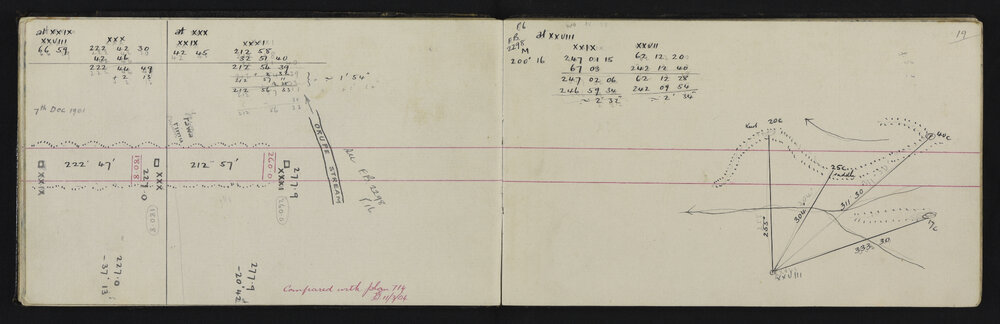 at XXIX
XXVIII XXX
66 59 222 42 30
42 46
222 44 49
+ 2 13
at XXX
XXIX XXXI
42 45 212 58
32 51 40
212 54 39
212 57
212 56 33
~ 1' 54"
7th Dec 1901
rimu
OKUPE STREAM
See
F.B. 2298
P/6
XXIX
222° 47'
180.8
XXX
227.0
212° 57'
260.0
XXXI
277.9
260.0
227.0
-37' 13
277.9
-20' 42
Compared with plan 714
P6
F.B.
2298
M
200' 16
at XXVIII
XXIX XXVII
247 01 15 62 12 20
67 03 242 12 40
247 02 06 62 12 28
246 59 34 242 09 54
~ 2' 32" ~ 2' 34"
19
20c
40c
25c
saddle
17c
253°
304
311 30
333 30
XXVIII